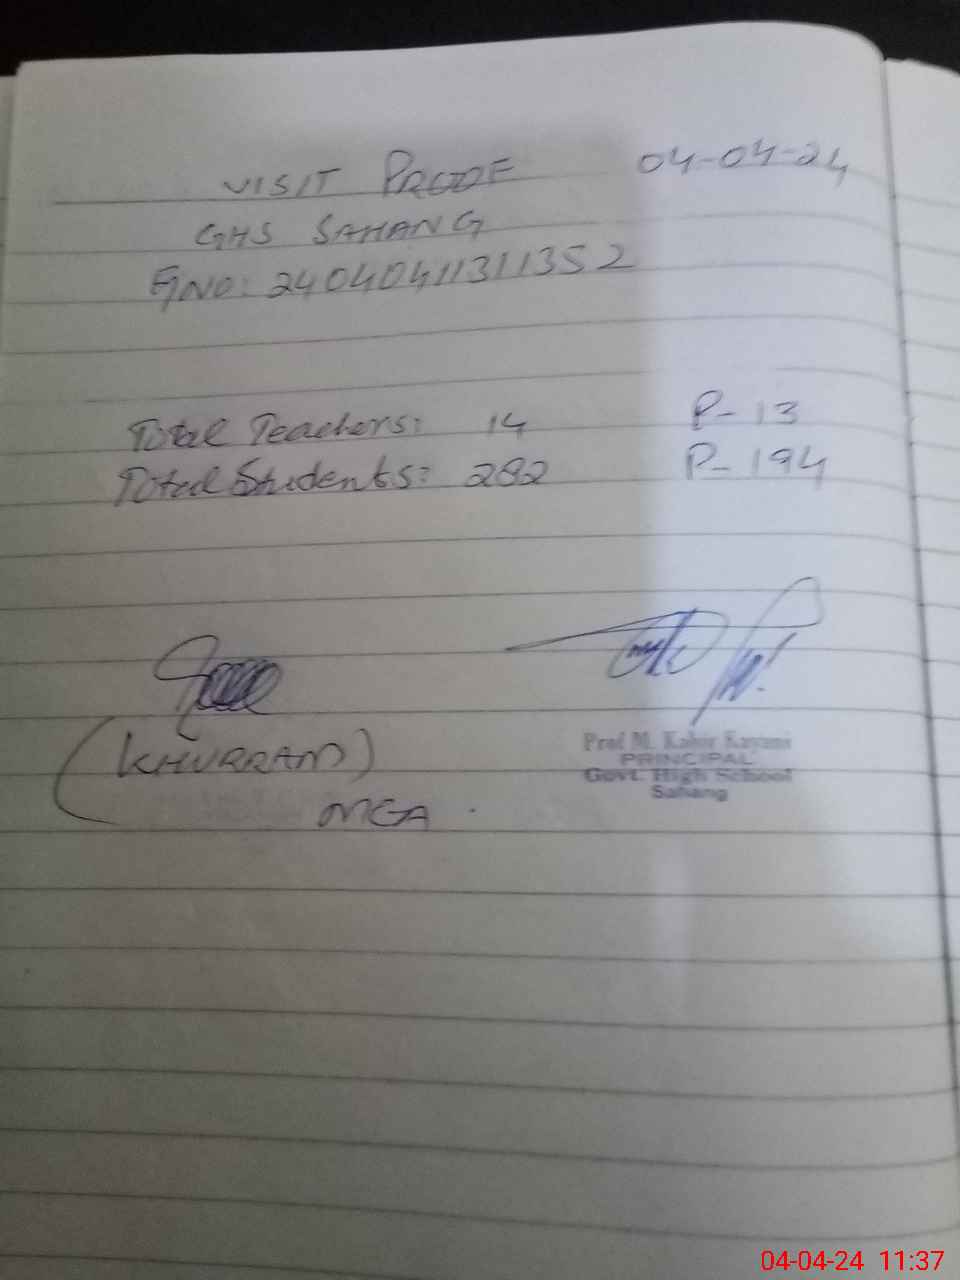 VISIT PROOF 04-04-24
GHS SAHANG
E,NO: 24040411311352
Total Teachers: 14 P- 13
Total Students: 282 P- 194
(KHURRAM)
MEA.
Prof M. Kabir Kayani
PRINCIPAL
Govt. High School
Sahang
04-04-24 11:37